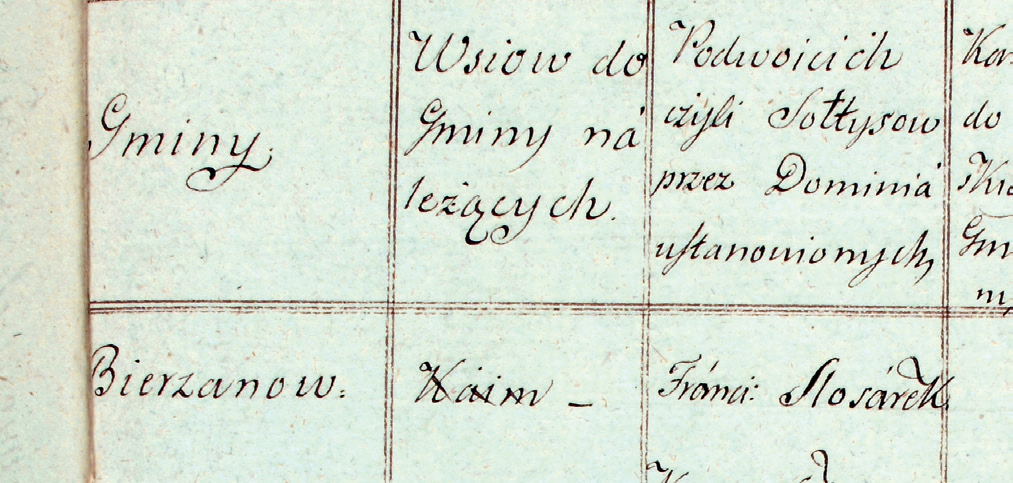 Gminy.
Wsiow do
Gminy ná
leżących.
Podwoicich
czyli Sołtysow
przez Dominiá
ustanowionych,
do
Bierzanow.
Kaim -
Fránci: Slosárek